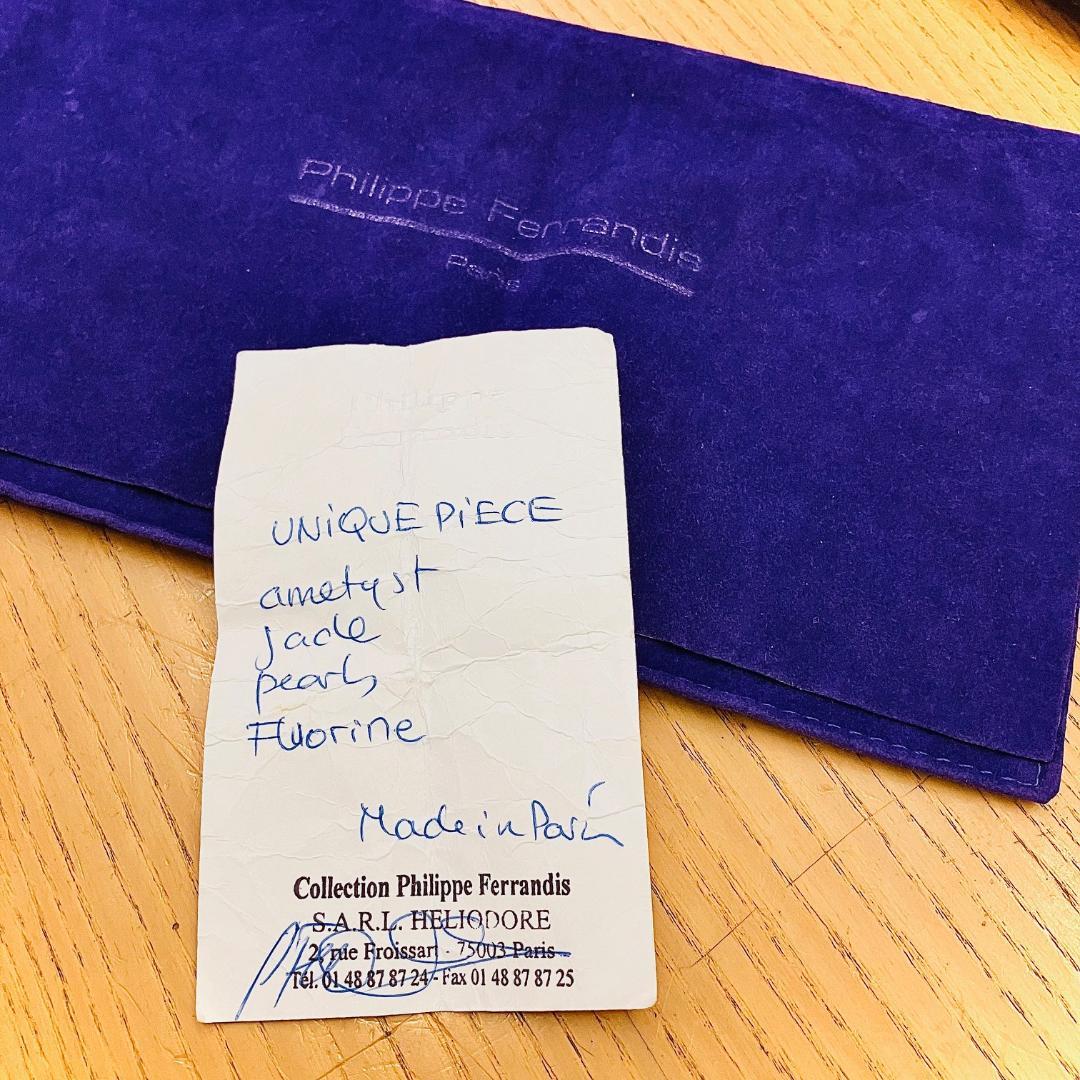 Philippe Ferrandis
Paris
Philippe
Ferrandis
UNiQUE PiECE
ametyst
jade
pearls
Fluorine
Made in Paris
Collection Philippe Ferrandis
S.A.R.L. HELIODORE
2, rue Froissart - 75003 Paris
Tél. 01 48 87 87 24 - Fax 01 48 87 87 25